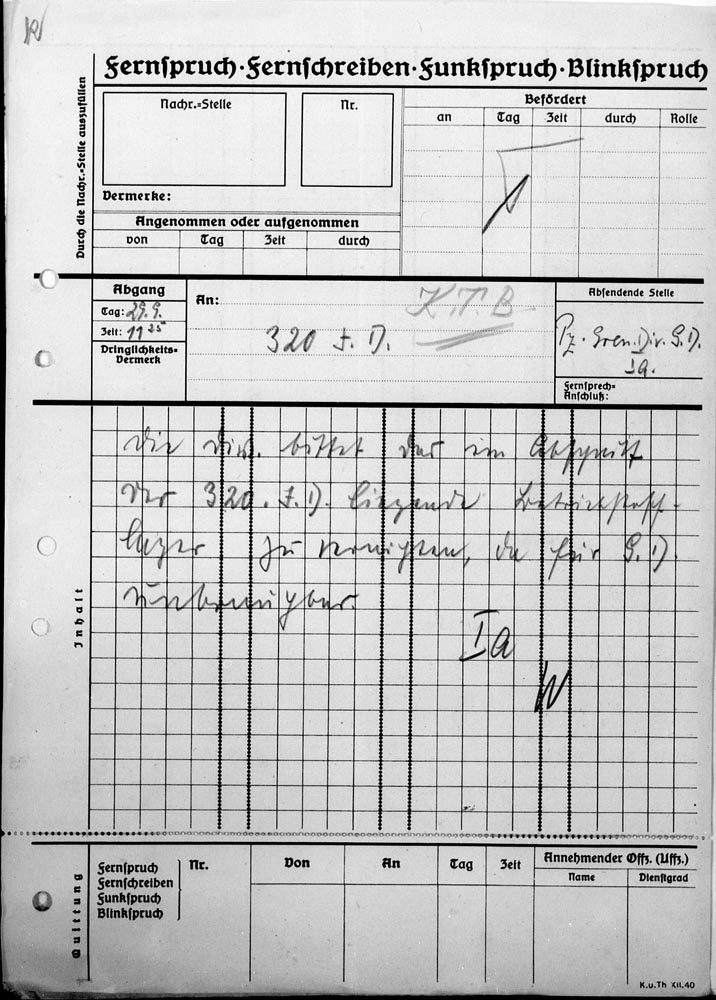 Fernspruch·Fernschreiben·Funkspruch·Blinkspruch
Durch die Nachr.=Stelle auszufüllen
Nachr.=Stelle
Nr.
Befördert
an
Tag
Zeit
durch
Rolle
Vermerke:
Angenommen oder aufgenommen
von
Tag
Zeit
durch
Abgang
Tag: 29.9.
Zeit: 11 25
Dringlichkeits=
Vermerk
An:
K.T.B
320 I. D.
Absendende Stelle
Pz. Gren. Div. G. D.
Ia.
Fernsprech=
Anschluß:
Inhalt
Die Div. bittet das im Abschnitt
der 320. I. D. liegende Betriebstoff-
lager zu vernichten, da für G. D.
unbrauchbar.
Ia
Quittung
Fernspruch
Fernschreiben
Funkspruch
Blinkspruch
Nr.
Von
An
Tag
Zeit
Annehmender Offz. (Uffz.)
Name
Dienstgrad
K.u.Th XII.40